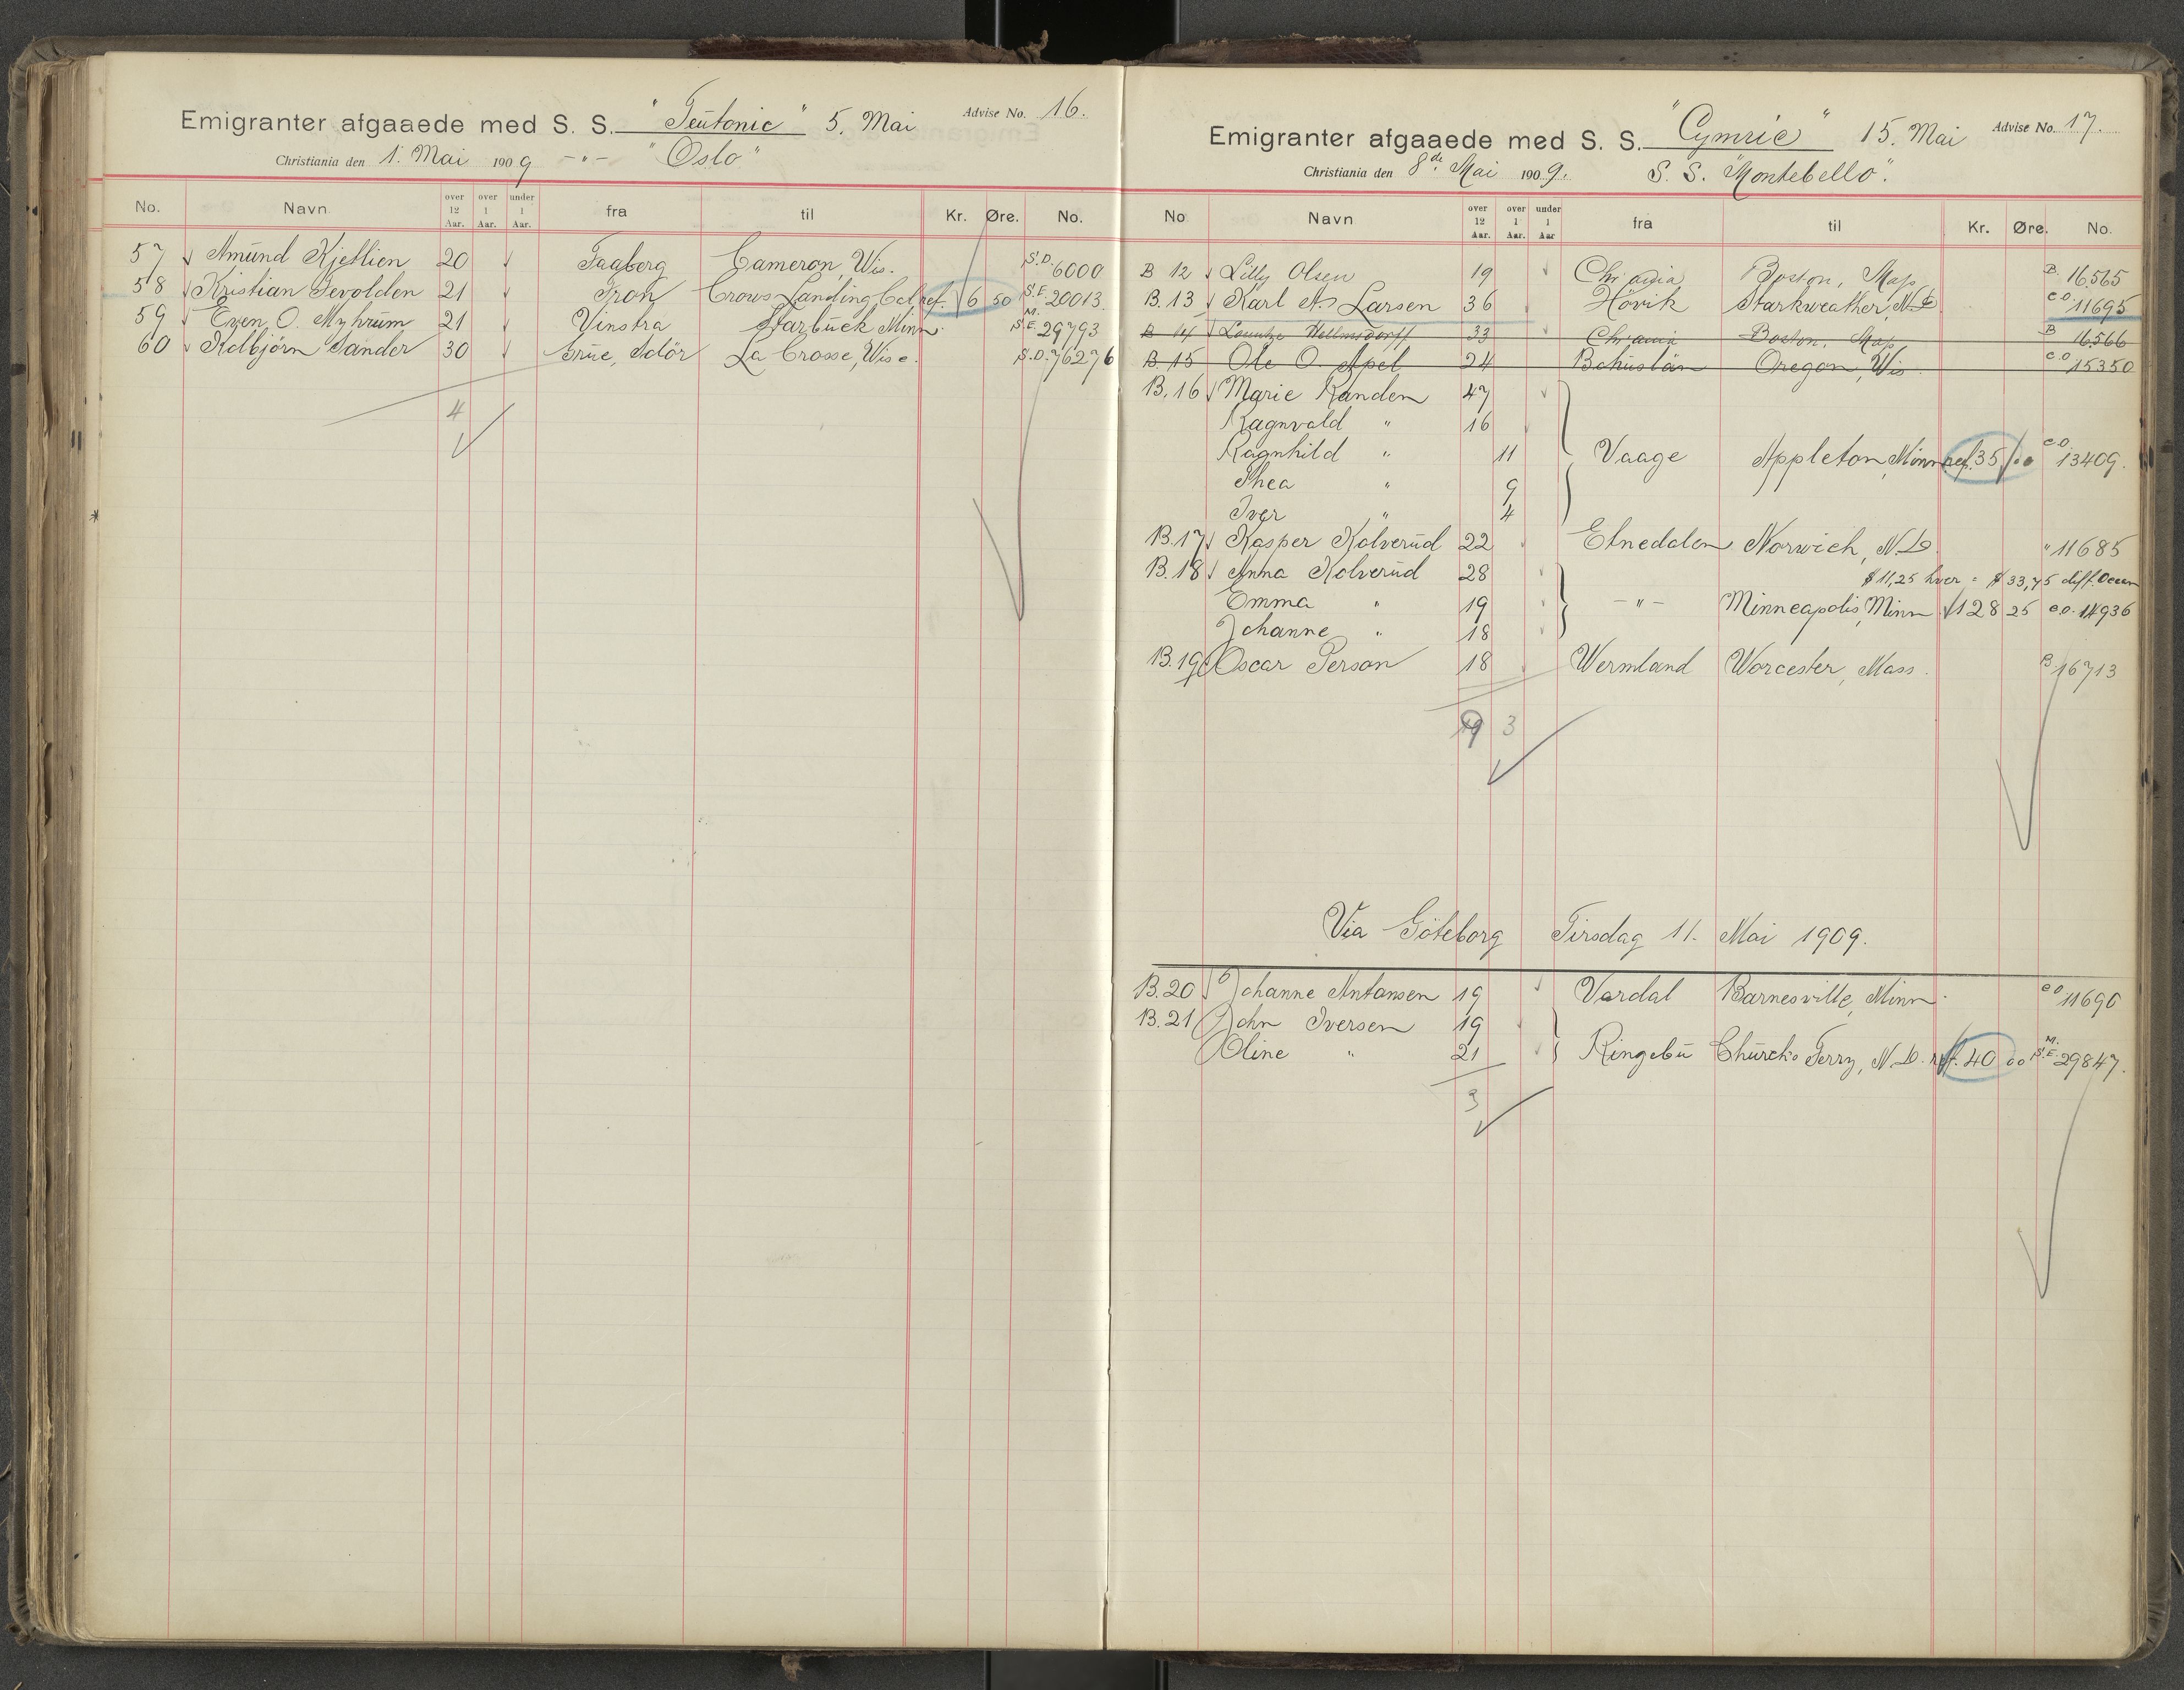 Emigranter afgaaede med S. S. "Teutonic" 5. Mai Advise No. 16.
Christiania den 1. Mai 1909 -"- "Oslo"
No. Navn over 12 Aar. over 1 Aar. under 1 Aar. fra til Kr. Øre. No.
57 Amund Kjetlien 20 Faaberg Cameron, Wis. S.D. 6000
58 Kristian Sevolden 21 Fron Crows Landing Cal ref. 6 50 S.E. 20013.
59 Even O. Myhrum 21 Vinstra Starbuck Minn. M. S.E. 29793
60 Kolbjörn Sander 30 Grue, Solör La Crosse, Wisc. S.D. 76276
4
Emigranter afgaaede med S. S. "Cymric" 15. Mai Advise No. 17.
Christiania den 8de Mai 1909. S. S. "Montebello".
No Navn over 12 Aar. over 1 Aar. under 1 Aar fra til Kr. Øre. No.
B 12 Lilly Olsen 19 Chr.ania Boston, Mass B. 16565
B. 13 Karl A. Larsen 36 Hövik Starkweather, N.D. C.O. 11695
B 14 33 Chr.ania Boston, Mass B 16566
B. 15 Ole O. Apel 24 Bohuslän Oregon, Wis. C.O. 15350
B. 16 Marie Randen 47
Ragnvald " 16
Ragnhild " 11 Vaage Appleton, Minn ref. 35 00 C.O. 13409.
Thea " 9
Iver " 4
B. 17 Kasper Kolverud 22 Etnedalen Norwich, N.D. " 11685
B. 18 Anna Kolverud 28 $ 11,25 hver = $ 33,75 diff. Ocean
Emma " 19 -"- Minneapolis, Minn 128 25 C.O. 14936
Johanne " 18
B. 19 Oscar Person 18 Wermland Worcester, Mass. B. 16713
9 3
Via Göteborg Tirsdag 11. Mai 1909.
B. 20 Johanne Antonsen 19 Vardal Barnesville, Minn. C.O. 11690
B. 21 John Iversen 19
Oline " 21 Ringebu Churchs Ferry, N.D. ref. 40 00 M. S.E. 29847.
3